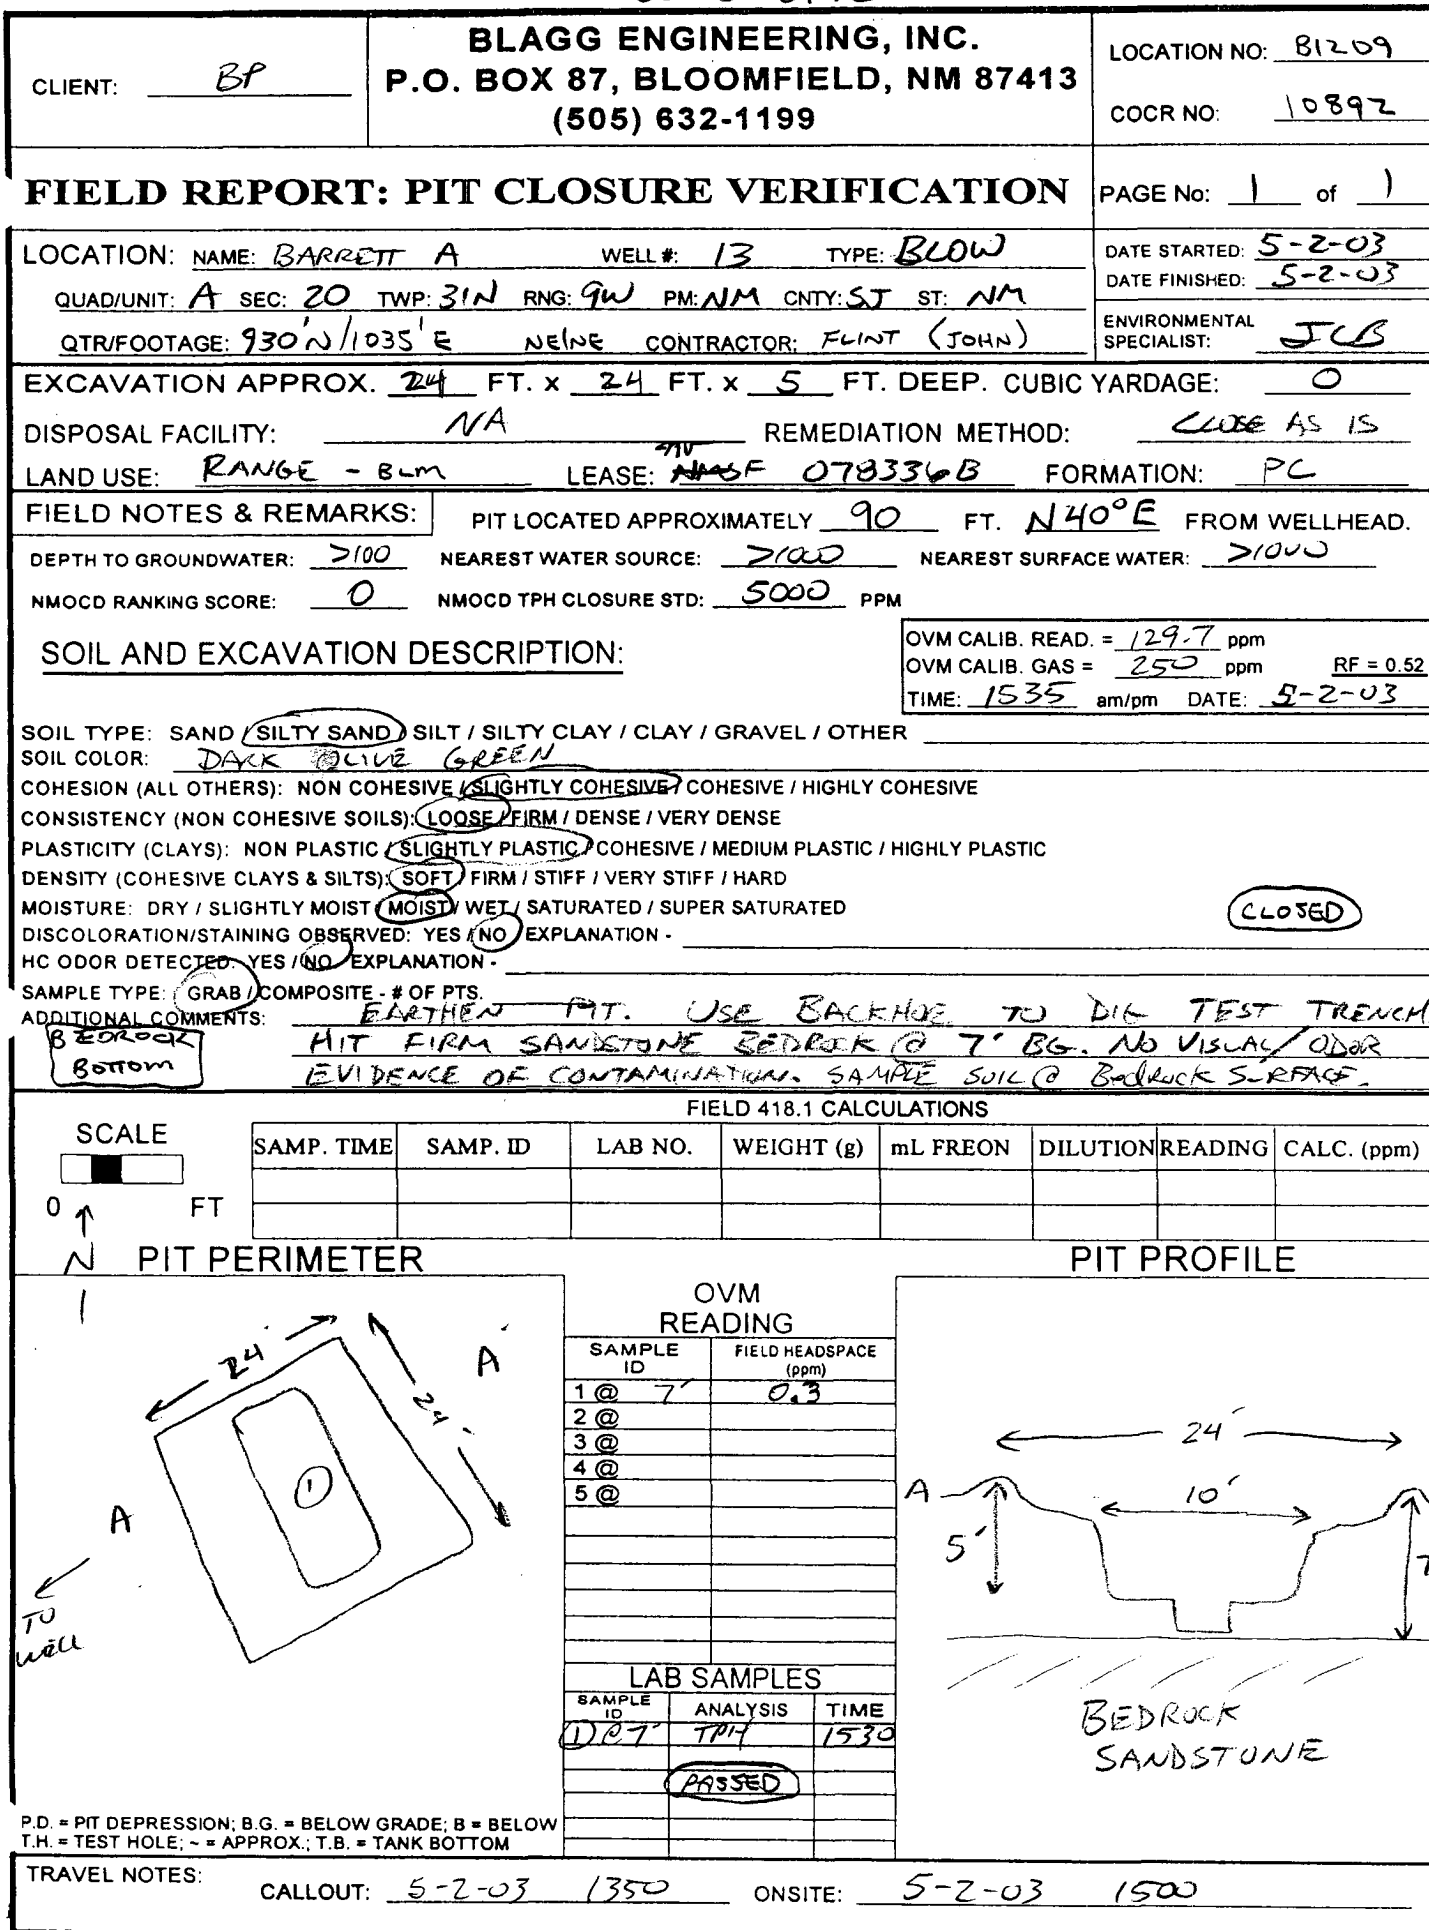 BLAGG ENGINEERING, INC.
P.O. BOX 87, BLOOMFIELD, NM 87413
(505) 632-1199
CLIENT: BP
LOCATION NO: B1209
COCR NO: 10892
FIELD REPORT: PIT CLOSURE VERIFICATION
PAGE No: 1 of 1
LOCATION: NAME: BARRETT A WELL #: 13 TYPE: BLOW
QUAD/UNIT: A SEC: 20 TWP: 31N RNG: 9W PM: NM CNTY: SJ ST: NM
QTR/FOOTAGE: 930'N/1035'E NE/NE CONTRACTOR: FLINT (JOHN)
DATE STARTED: 5-2-03
DATE FINISHED: 5-2-03
ENVIRONMENTAL
SPECIALIST: JCB
EXCAVATION APPROX. 24 FT. x 24 FT. x 5 FT. DEEP. CUBIC YARDAGE: 0
DISPOSAL FACILITY: NA REMEDIATION METHOD: CLOSE AS IS
LAND USE: RANGE - BLM LEASE: F 078336B FORMATION: PC
FIELD NOTES & REMARKS: PIT LOCATED APPROXIMATELY 90 FT. N40°E FROM WELLHEAD.
DEPTH TO GROUNDWATER: >100 NEAREST WATER SOURCE: >1000 NEAREST SURFACE WATER: >1000
NMOCD RANKING SCORE: 0 NMOCD TPH CLOSURE STD: 5000 PPM
SOIL AND EXCAVATION DESCRIPTION:
OVM CALIB. READ. = 129.7 ppm
OVM CALIB. GAS = 250 ppm RF = 0.52
TIME: 1535 am/pm DATE: 5-2-03
SOIL TYPE: SAND / SILTY SAND / SILT / SILTY CLAY / CLAY / GRAVEL / OTHER
SOIL COLOR: DARK OLIVE GREEN
COHESION (ALL OTHERS): NON COHESIVE / SLIGHTLY COHESIVE / COHESIVE / HIGHLY COHESIVE
CONSISTENCY (NON COHESIVE SOILS): LOOSE / FIRM / DENSE / VERY DENSE
PLASTICITY (CLAYS): NON PLASTIC / SLIGHTLY PLASTIC / COHESIVE / MEDIUM PLASTIC / HIGHLY PLASTIC
DENSITY (COHESIVE CLAYS & SILTS): SOFT / FIRM / STIFF / VERY STIFF / HARD
MOISTURE: DRY / SLIGHTLY MOIST / MOIST / WET / SATURATED / SUPER SATURATED
CLOSED
DISCOLORATION/STAINING OBSERVED: YES / NO EXPLANATION -
HC ODOR DETECTED: YES / NO EXPLANATION -
SAMPLE TYPE: GRAB / COMPOSITE - # OF PTS.
ADDITIONAL COMMENTS: EARTHEN PIT. USE BACKHOE TO DIG TEST TRENCH
HIT FIRM SANDSTONE BEDROCK @ 7' BG. NO VISUAL/ODOR
EVIDENCE OF CONTAMINATION. SAMPLE SOIL @ Bedrock SURFACE.
BEDROCK
BOTTOM
FIELD 418.1 CALCULATIONS
SCALE
0 FT
SAMP. TIME SAMP. ID LAB NO. WEIGHT (g) mL FREON DILUTION READING CALC. (ppm)
N
PIT PERIMETER
24'
24'
A'
A
1
TO
well
OVM
READING
SAMPLE
ID
FIELD HEADSPACE
(ppm)
1 @ 7' 0.3
2 @
3 @
4 @
5 @
LAB SAMPLES
SAMPLE
ID
ANALYSIS TIME
1 @ 7' TPH 1530
PASSED
PIT PROFILE
24'
A
10'
5'
7
BEDROCK
SANDSTONE
P.D. = PIT DEPRESSION; B.G. = BELOW GRADE; B = BELOW
T.H. = TEST HOLE; ~ = APPROX.; T.B. = TANK BOTTOM
TRAVEL NOTES:
CALLOUT: 5-2-03 1350 ONSITE: 5-2-03 1500